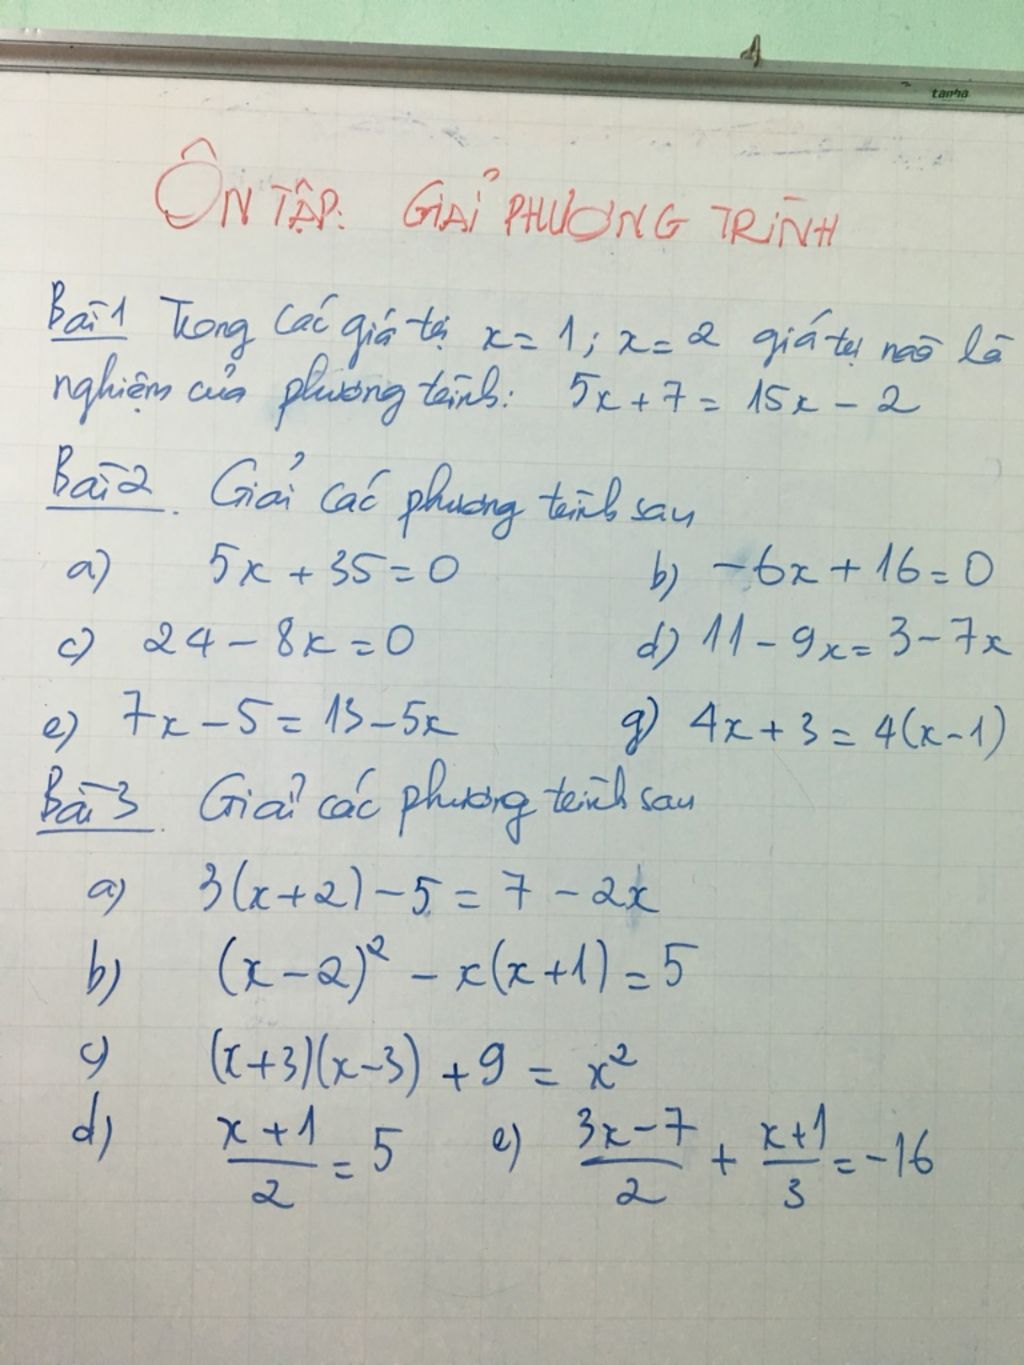 tanha
ÔN TẬP: GIẢI PHƯƠNG TRÌNH
Bài 1 Trong các giá trị x = 1 ; x = 2 giá trị nào là
nghiệm của phương trình: 5x + 7 = 15x - 2
Bài 2. Giải các phương trình sau
a) 5x + 35 = 0 b) -6x + 16 = 0
c) 24 - 8x = 0 d) 11 - 9x = 3 - 7x
e) 7x - 5 = 13 - 5x g) 4x + 3 = 4(x - 1)
Bài 3. Giải các phương trình sau
a) 3(x + 2) - 5 = 7 - 2x
b) (x - 2)² - x(x + 1) = 5
c) (x + 3)(x - 3) + 9 = x²
d) (x + 1)/2 = 5 e) (3x - 7)/2 + (x + 1)/3 = -16